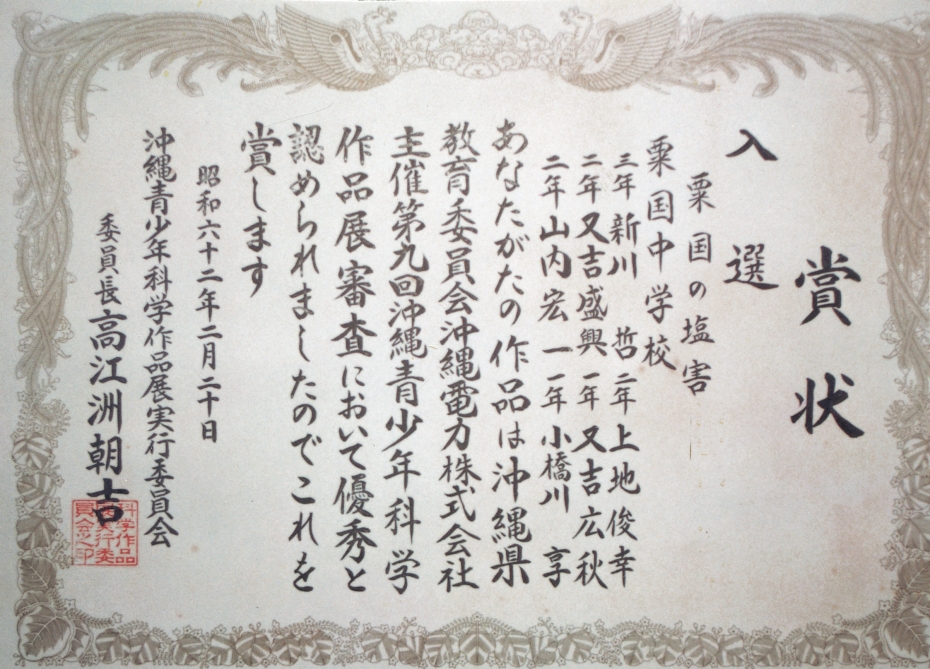 賞状
入選
粟国の塩害
粟国中学校
三年 新川 哲 二年 上地俊幸
二年 又吉盛興 一年 又吉広秋
二年 山内宏一 一年 小橋川 享
あなたがたの作品は沖縄県
教育委員会沖縄電力株式会社
主催第九回沖縄青少年科学
作品展審査において優秀と
認められましたのでこれを
賞します
昭和六十二年二月二十日
沖縄青少年科学作品展実行委員会
委員長 高江洲朝吉
科学作品
展実行委
員会之印